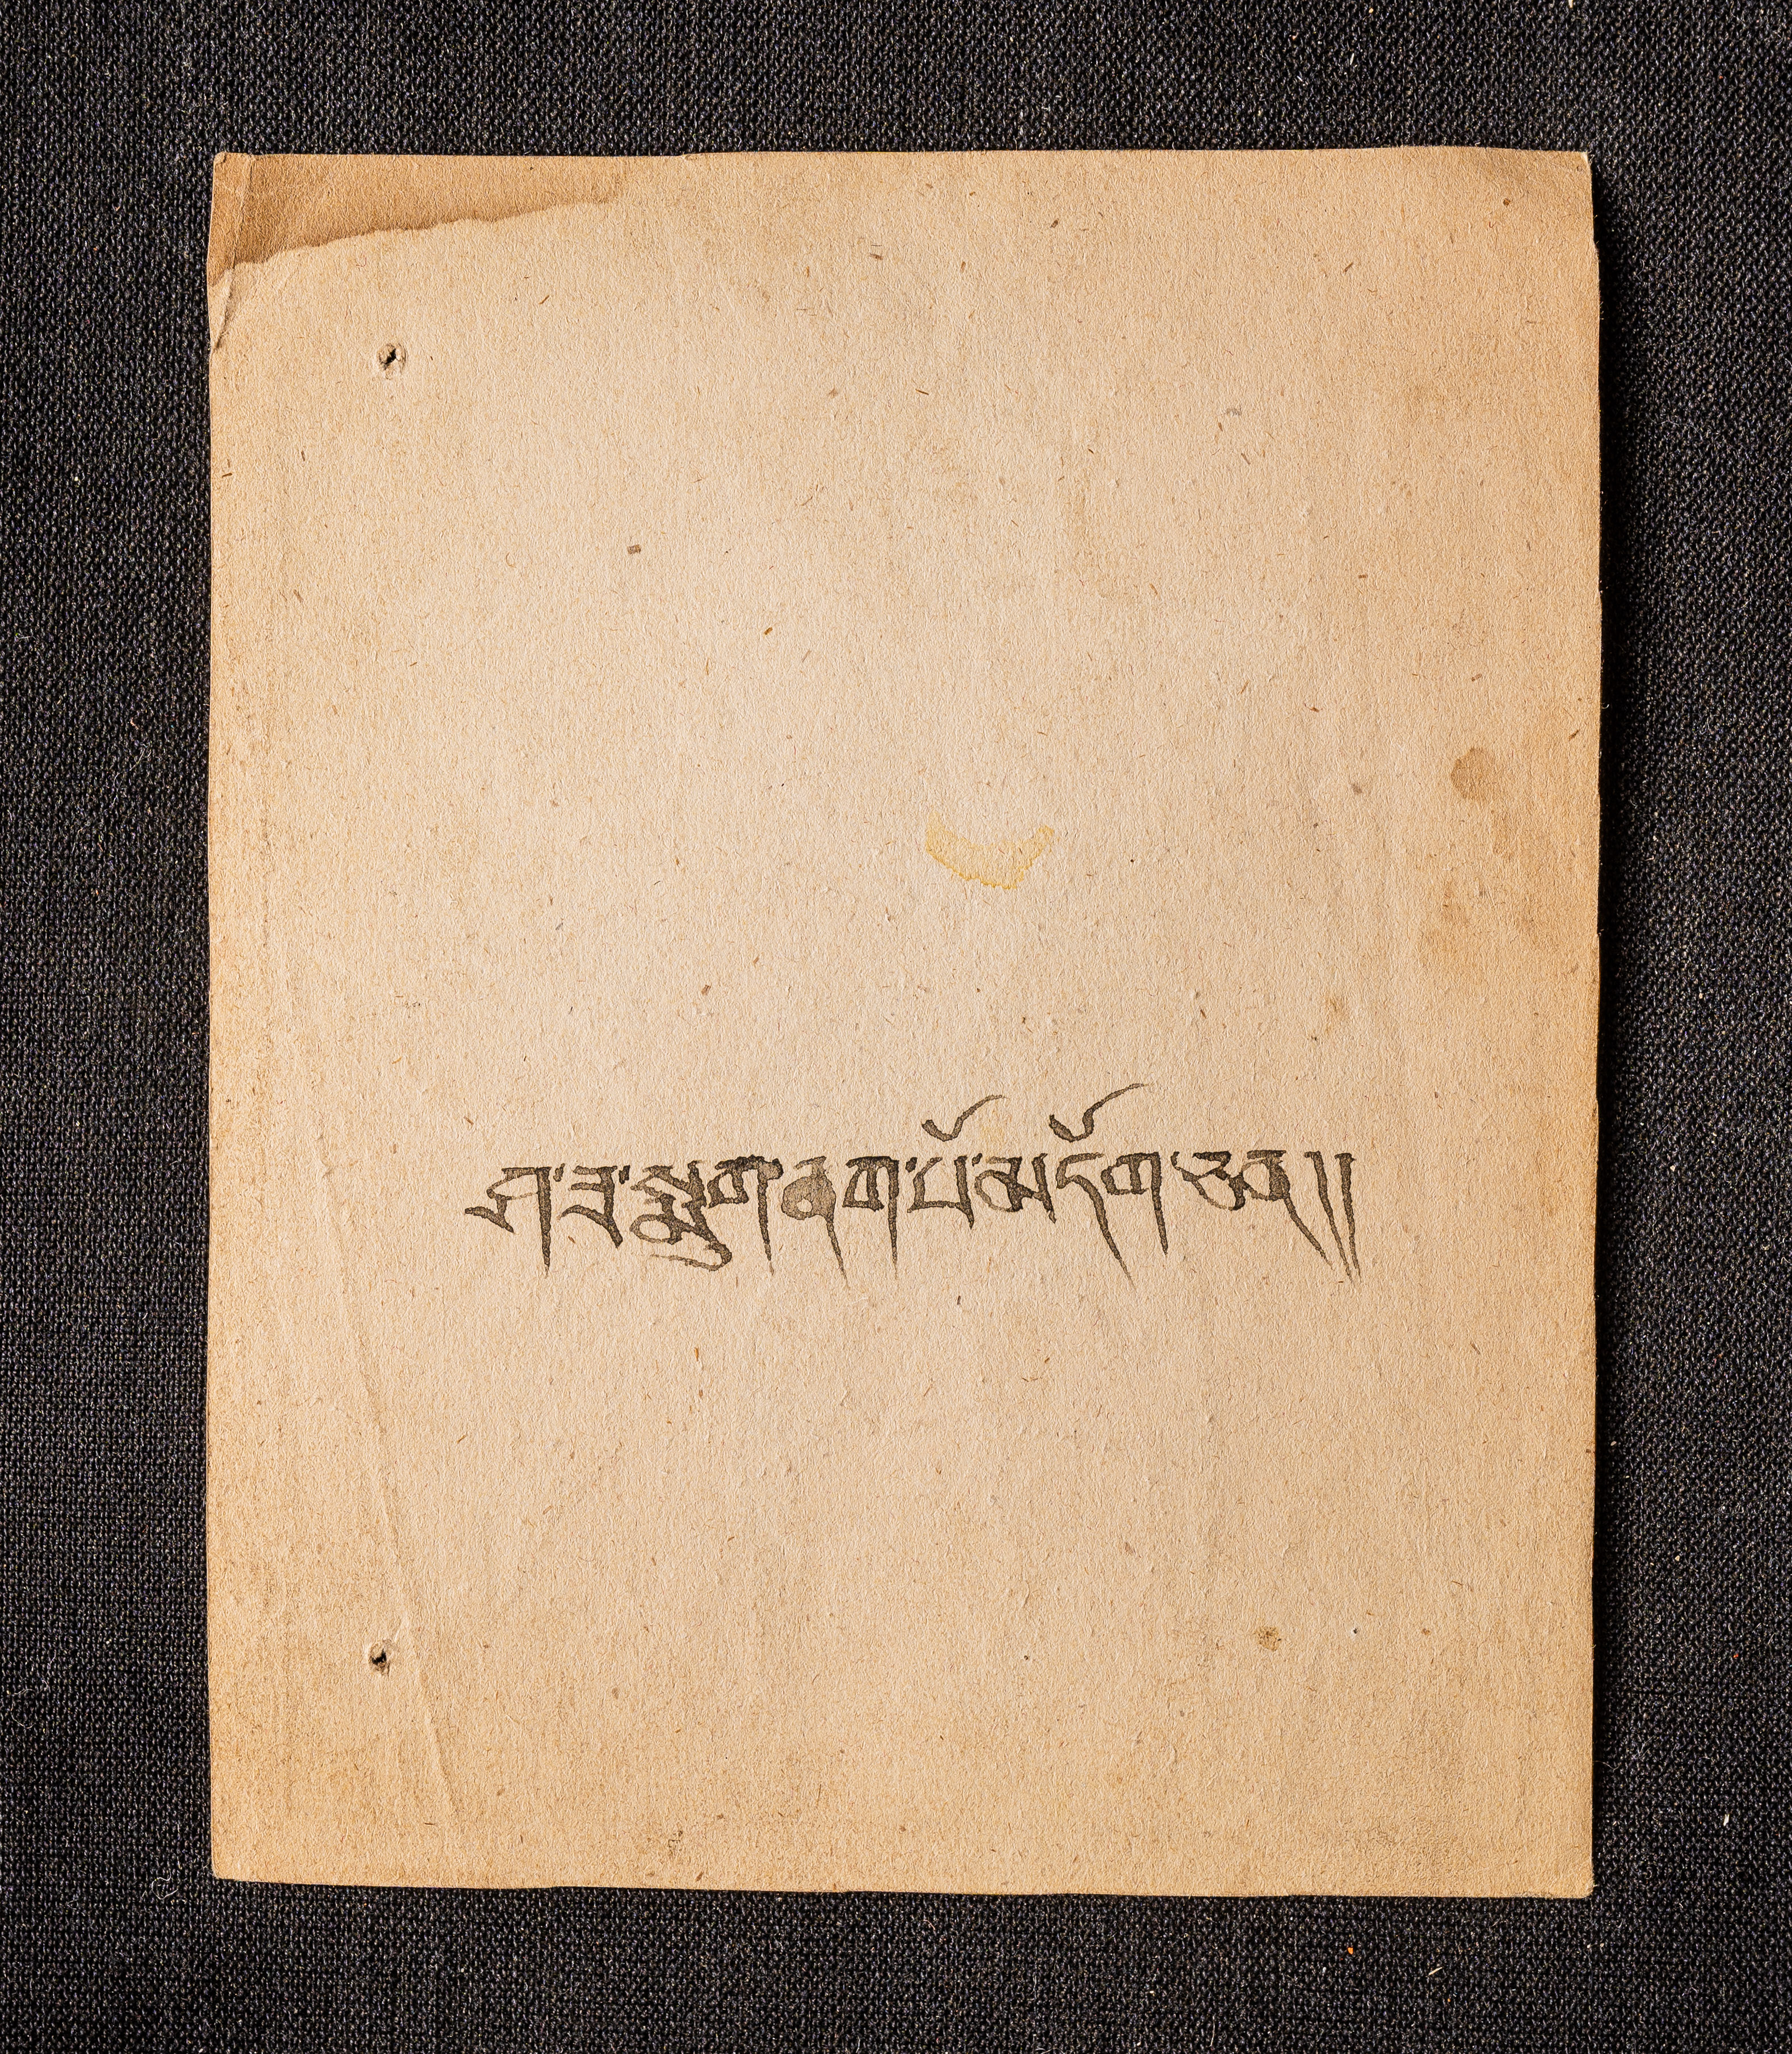 ཤ་ཟ་སྨུག་ནག་པོ་མདོག་ཅན།།